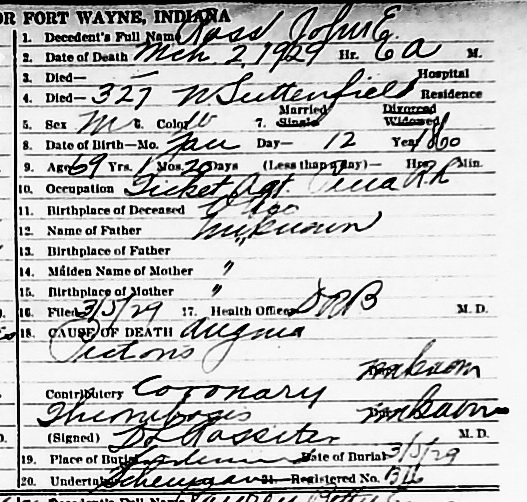 OR FORT WAYNE, INDIANA
1. Decedent's Full Name Ross John E.
2. Date of Death Mch 2, 1929 Hr. A M.
3. Died— — Hospital
4. Died— 327 W Suttenfield Residence
5. Sex M 6. Color W 7. Married Single Divorced Widowed
8. Date of Birth—Mo. Jan Day— 12 Year 1860
9. Age 69 Yrs. 1 Mos. 20 Days (Less than a day)— Hrs. Min.
10. Occupation Ticket Agt. Penna R R
11. Birthplace of Deceased
12. Name of Father Unknown
13. Birthplace of Father "
14. Maiden Name of Mother "
15. Birthplace of Mother "
16. Filed 3/5/29 17. Health Officer D R B M. D.
18. CAUSE OF DEATH Angina
Pectoris
Contributory Coronary unknown
Thrombosis Dur. unknown
(Signed) Rossiter M. D.
19. Place of Burial Lindenwood Date of Burial 3/5/29
20. Undertaker 21. Registered No.
Decedent's Full Name